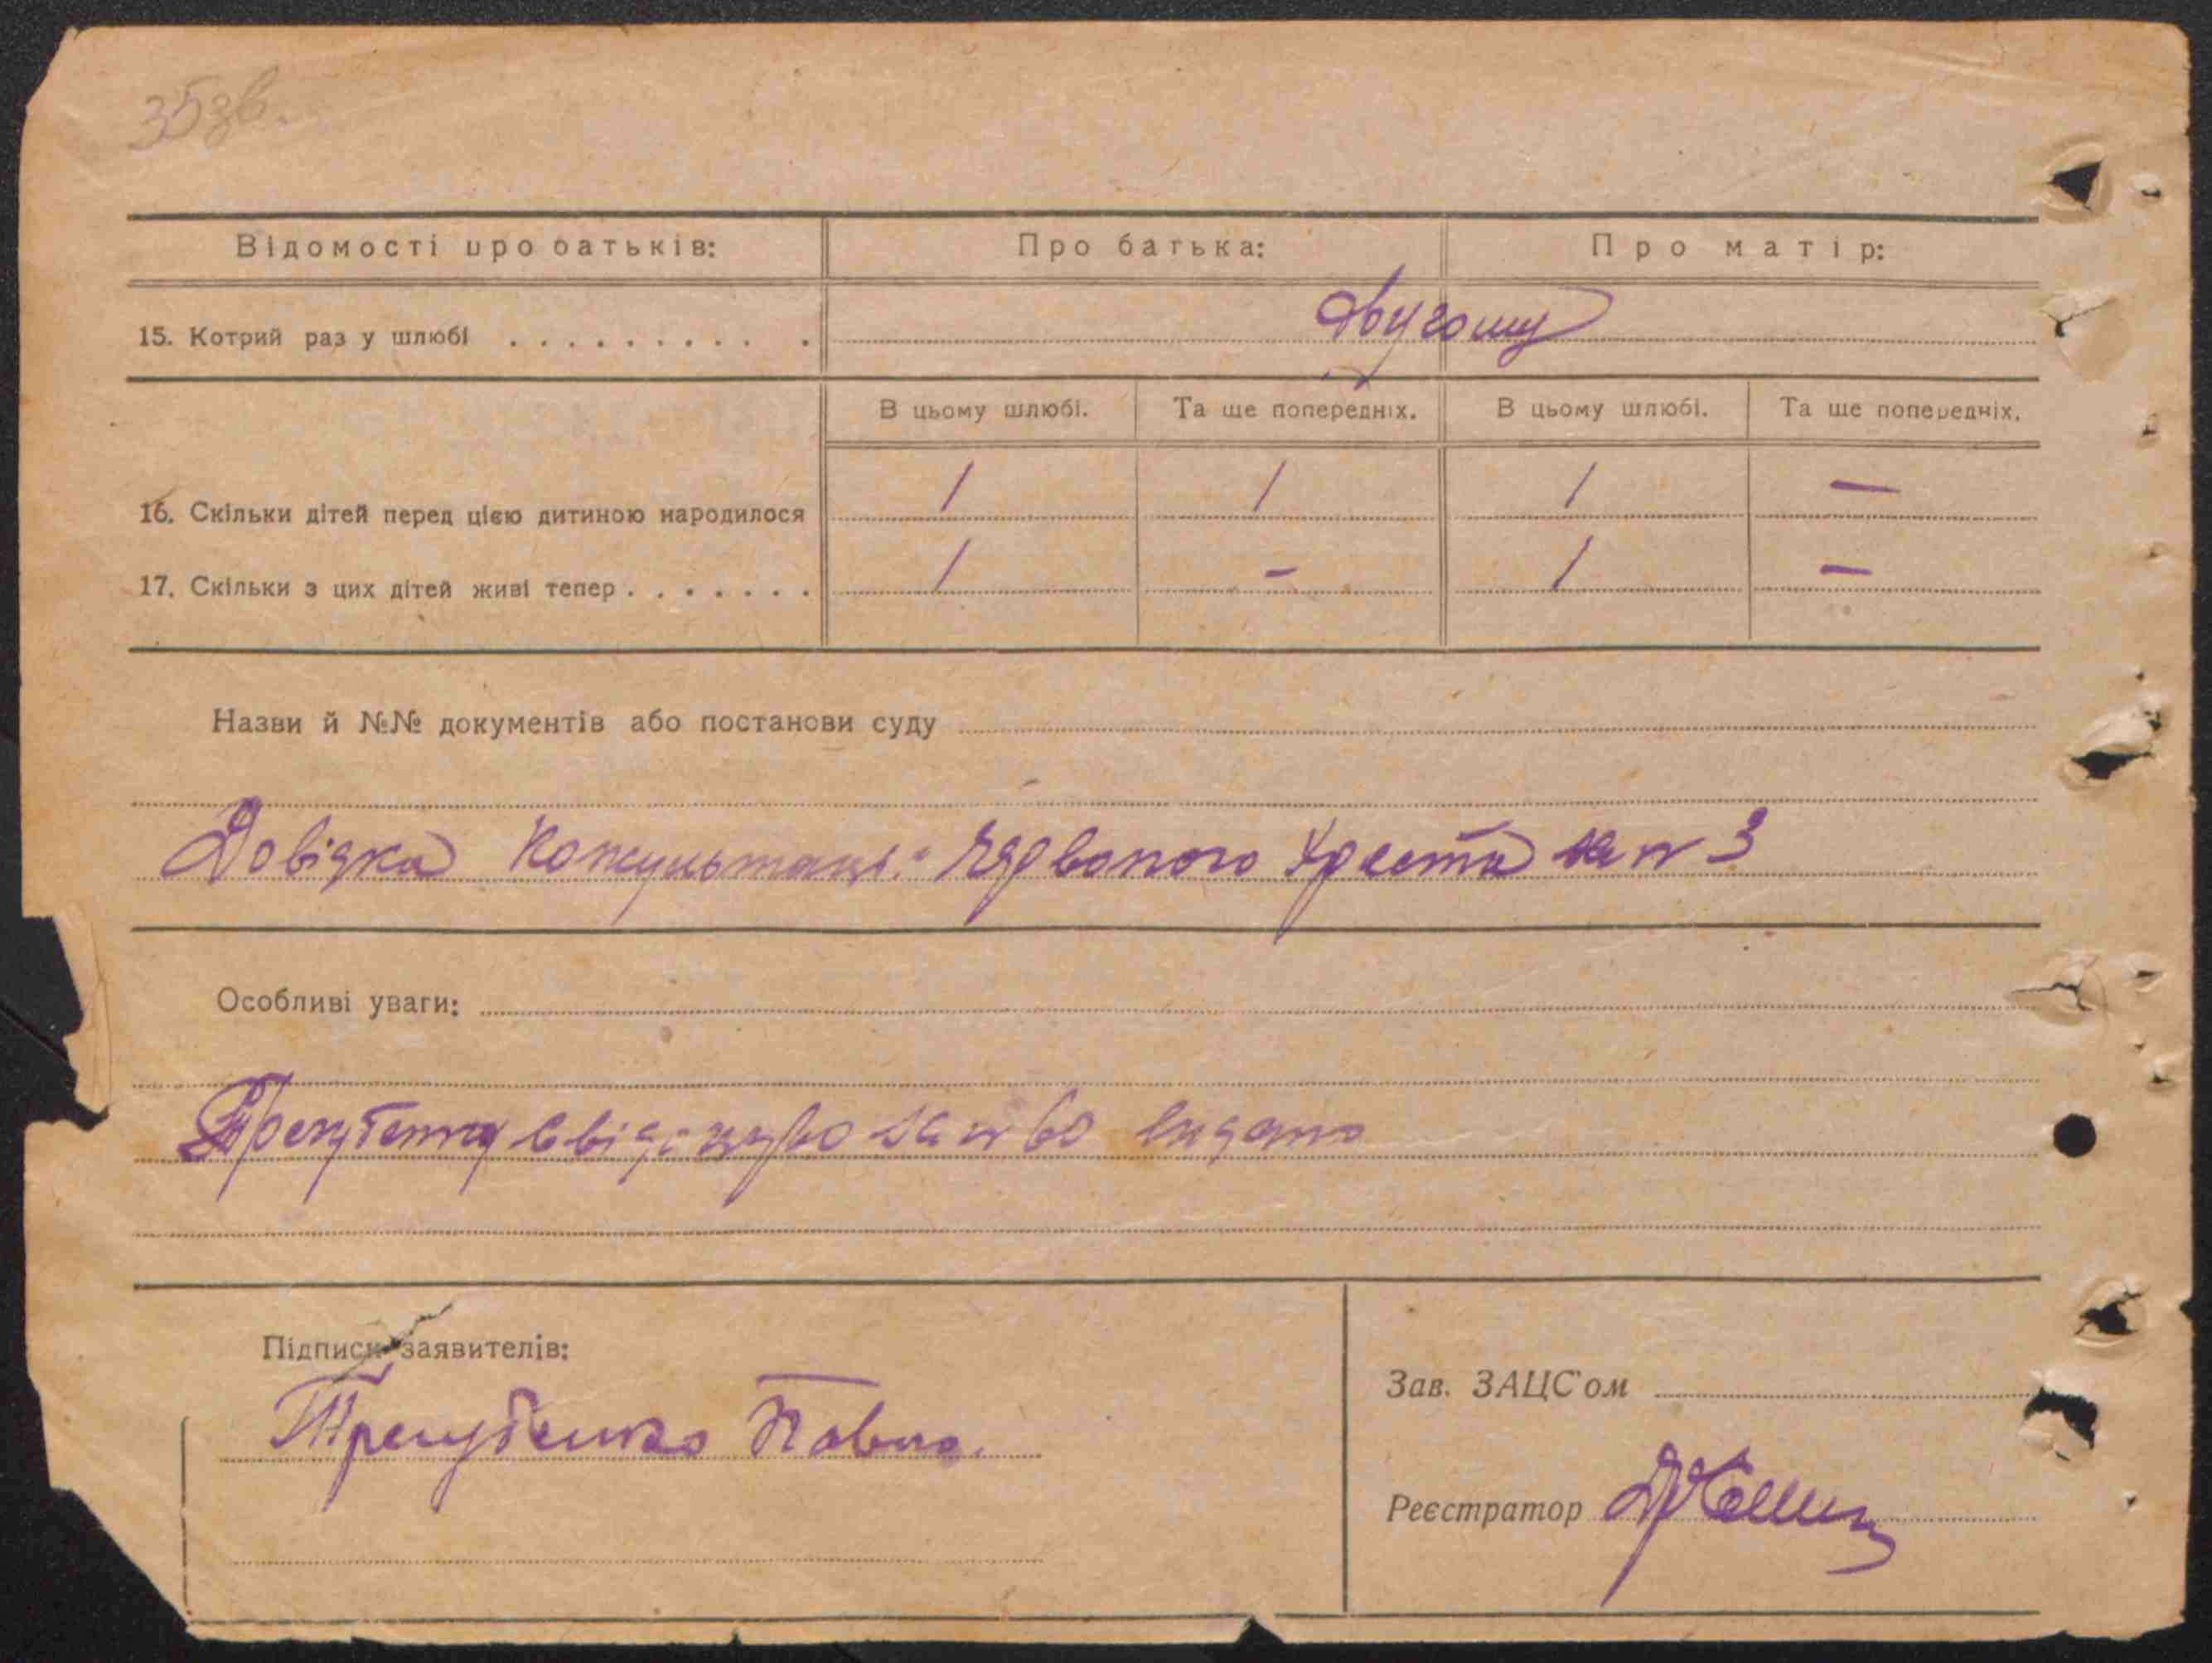 35зв.
Відомості про батьків: Про батька: Про матір:
15. Котрий раз у шлюбі . . . . . . . . . . другому
В цьому шлюбі. Та ще попередніх. В цьому шлюбі. Та ще попередніх.
16. Скільки дітей перед цією дитиною народилося 1 1 1 —
17. Скільки з цих дітей живі тепер . . . . . . . 1 - 1 —
Назви й №№ документів або постанови суду
Довідка Консультаці Червоного Хреста за n 3
Особливі уваги:
за n 60 видано
Підписи заявителів:
Трегубенко Павло.
Зав. ЗАЦС'ом
Реєстратор